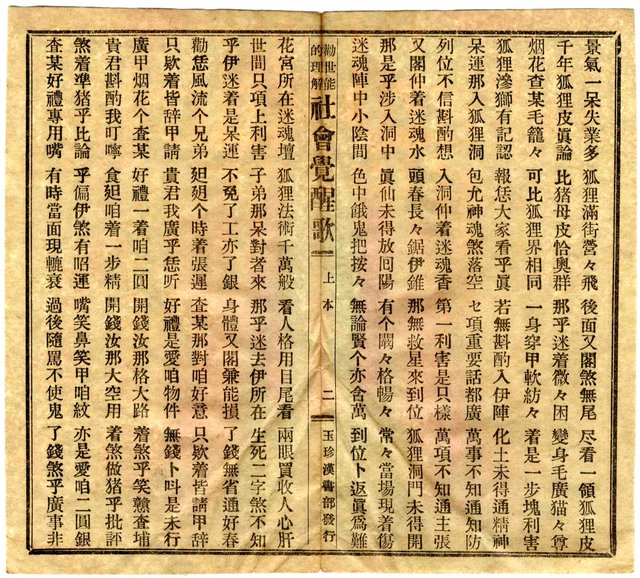 景氣一呆失業多 狐狸滿街營々飛 後面又閣煞無尾 尽看一領狐狸皮
千年狐狸皮眞論 比猪母皮恰奥群 那乎迷着微々困 變身毛廣猫々尊
烟花查某毛籠々 可比狐狸界相同 一身穿甲軟紡々 着是一步塊利害
狐狸滲獅有記認 報恁大家看乎眞 若無斟酌入伊陣 化土未得通精神
呆運那入狐狸洞 包允神魂煞落空 七項重要話都廣 萬事不知通知防
列位不信斟酌想 入洞仲着迷魂香 第一利害是只樣 萬項不知通主張
又閣仲着迷魂水 頭春長々鋸伊錐 那無救星來到位 狐狸洞門未得開
那是乎涉入洞中 眞仙未得放囘陽 有个闗々格暢々 常々當場現着傷
迷魂陣中小陰間 色中餓鬼把按々 無論賢个亦含萬 到位卜返眞爲難
勸世能的理解 社會覺醒歌 上本 二 玉珍漢書部發行
花宮所在迷魂壇 狐狸法術千萬般 看人格用目尾看 兩眼買收人心肝
世間只項上利害 子弟那呆對者來 那乎迷去伊所在 生死二字煞不知
乎伊迷着是呆運 不免了工亦了銀 身體又閣兼能損 了錢無省通好春
勸恁風流个兄弟 廸廸个時着張遲 查某那對咱好意 只欺着皆請甲辞
只欺着皆辞甲請 貴君我廣乎恁听 好禮是愛咱物件 無錢卜呌是未行
廣甲烟花个查某 好禮一着咱二圓 開錢汝那格大路 着煞乎笑憨查埔
貴君斟酌我叮嚀 食廸咱着一步精 開錢汝那大空用 着煞做猪乎批評
煞着準猪乎比論 乎偏伊煞有昭運 嘴笑鼻笑甲咱紋 亦是愛咱二圓銀
查某好禮專用嘴 有時當面現轆衰 過後隨罵不使鬼 了錢煞乎廣事非